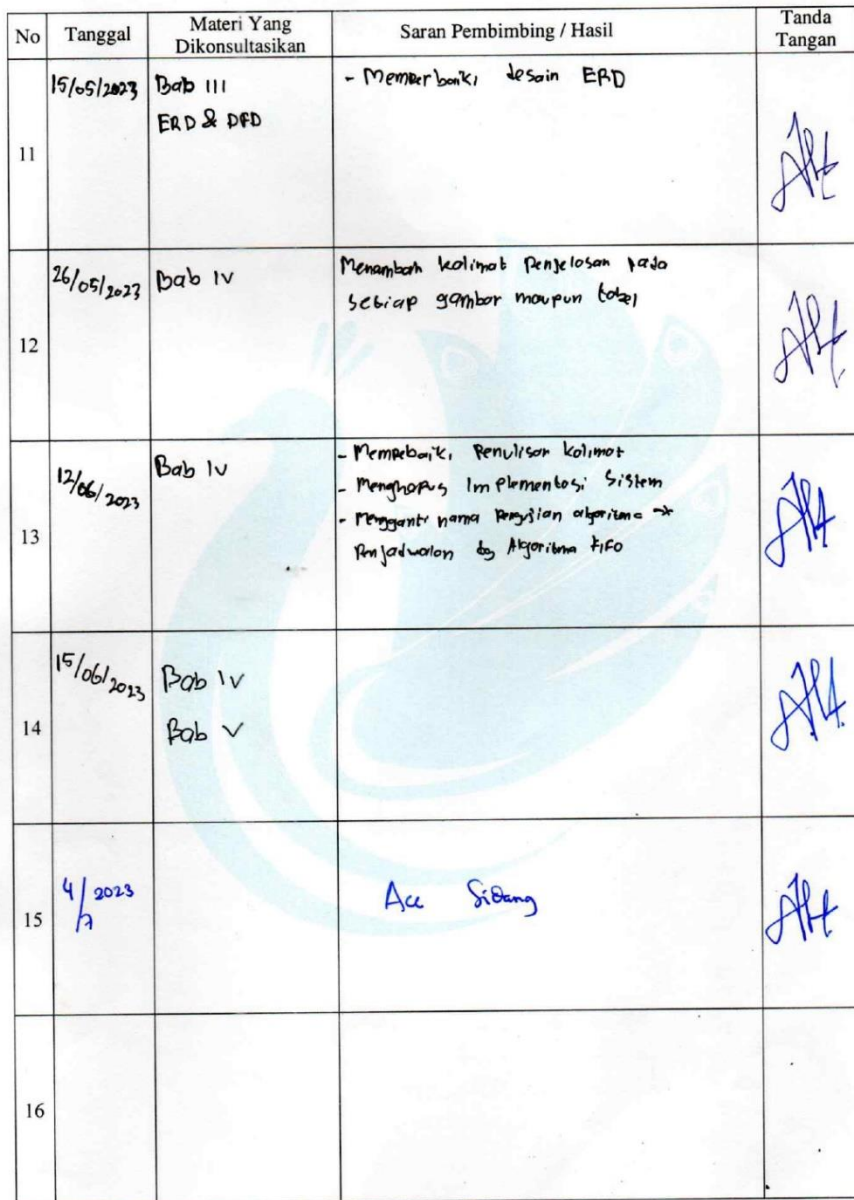 No Tanggal Materi Yang Dikonsultasikan Saran Pembimbing / Hasil Tanda Tangan
11 15/05/2023 Bab III - Memperbaiki desain ERD
ERD & DFD
12 26/05/2023 Bab IV Menambah kalimat Penjelasan pada
setiap gambar maupun tabel
13 12/06/2023 Bab IV - Mempebaiki Penulisan kalimat
- Menghapus Implementasi Sistem
- Mengganti nama Pengujian algoritma →
Penjadwalan dg Algoritma FIFO
14 15/06/2023 Bab IV
Bab V
15 4/7 2023 Acc Sidang
16